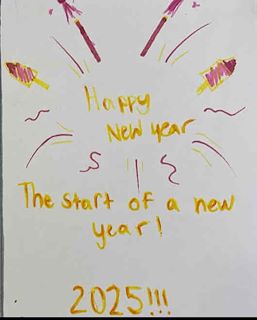 Happy
New year
The start of a new
year!
2025!!!